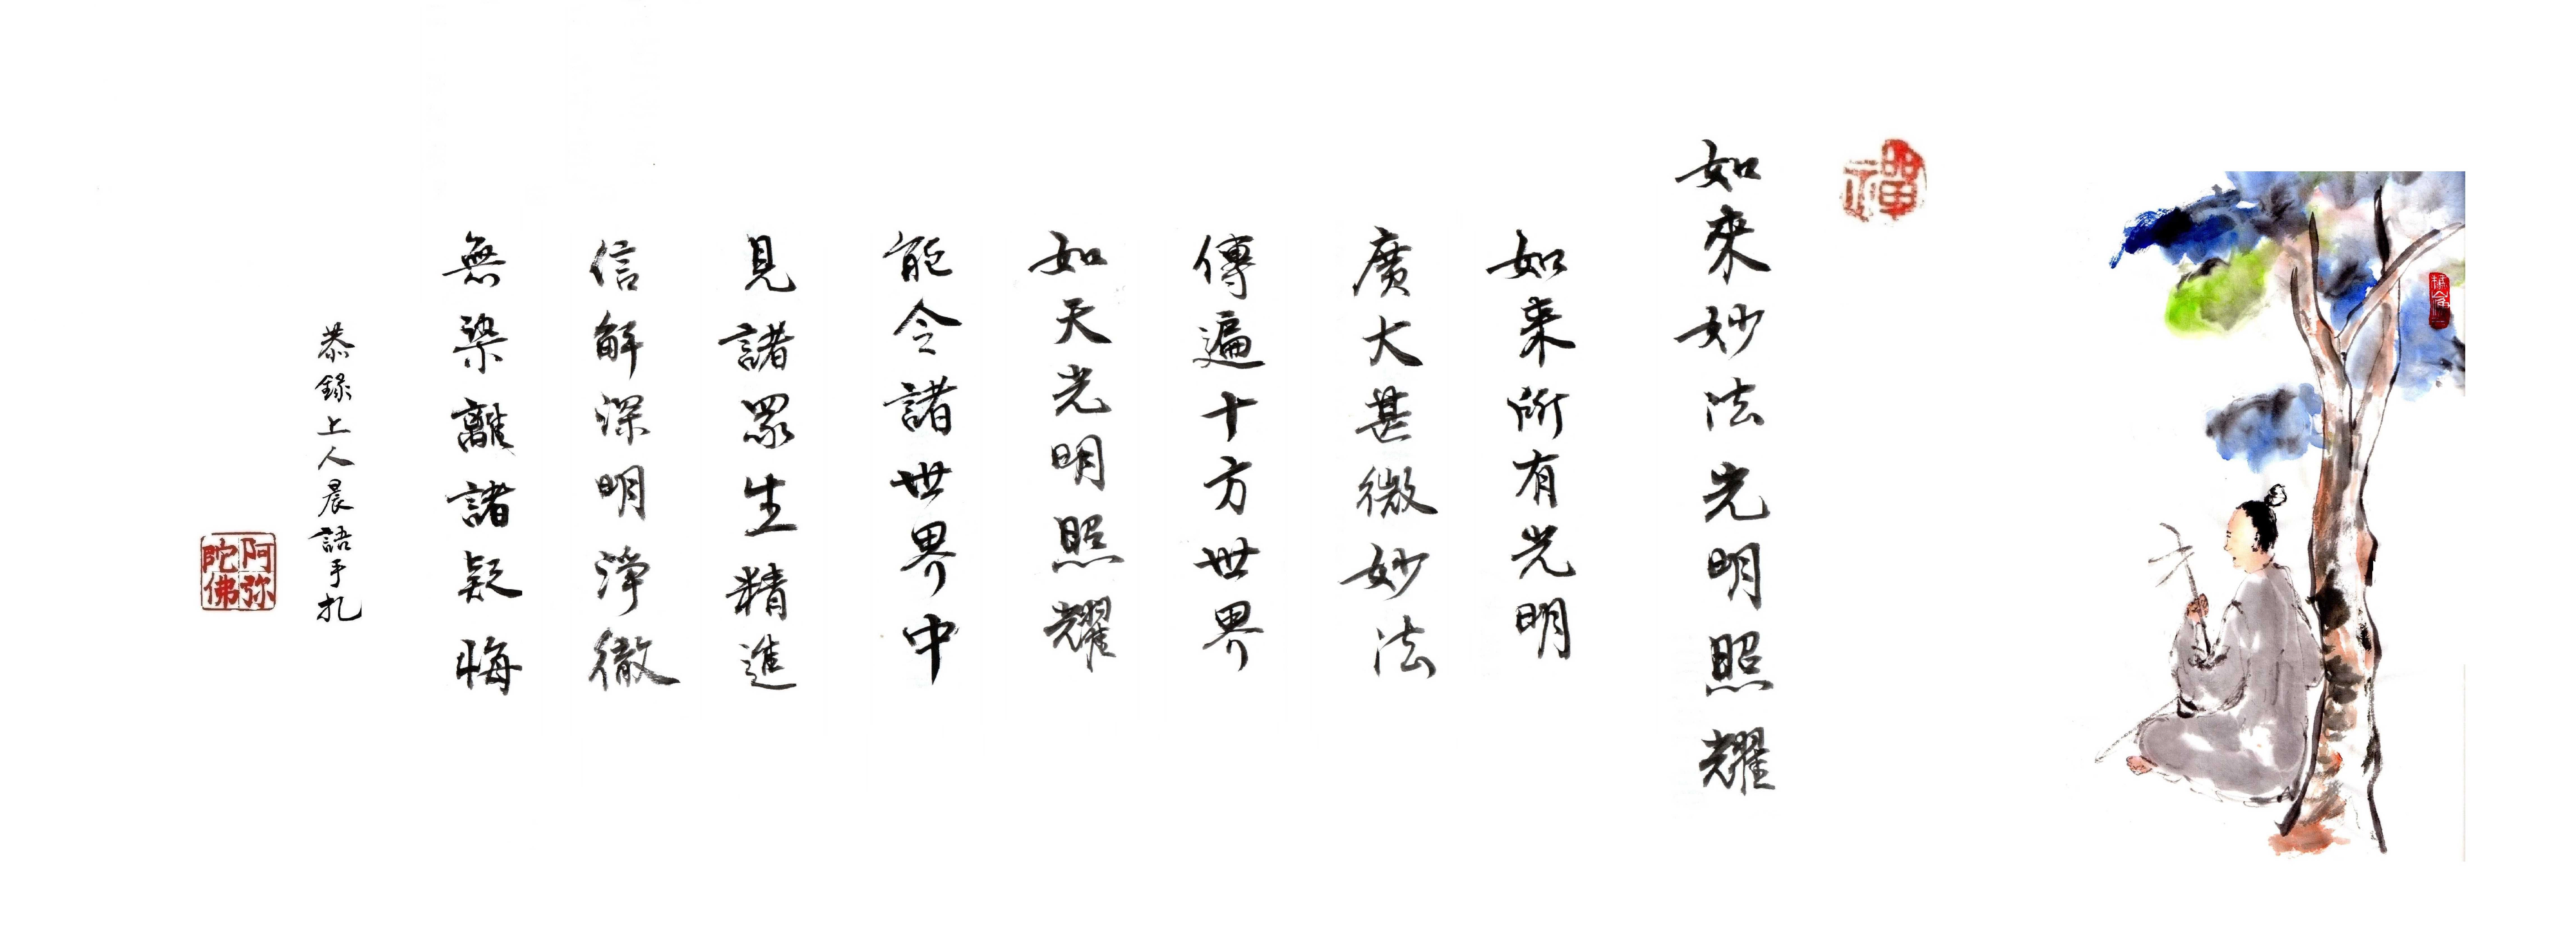 禪
如來妙法光明照耀
如来所有光明
廣大甚微妙法
傳遍十方世界
如天光明照耀
能令諸世界中
見諸眾生精進
信解深明淨徹
無染離諸疑悔
恭錄上人晨語手札
阿弥
陀佛